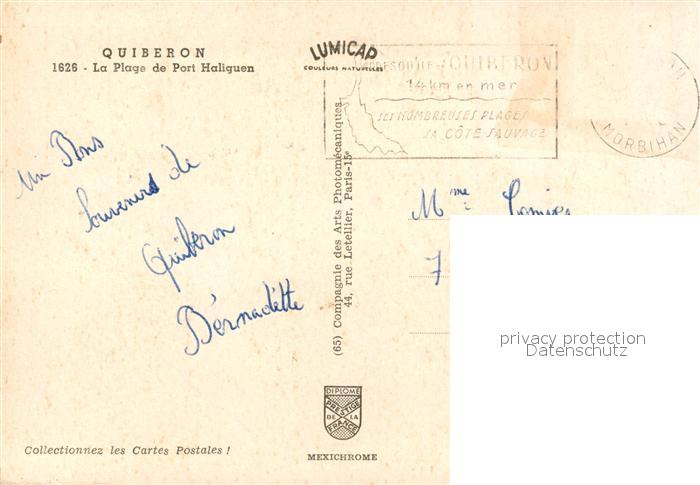 QUIBERON
1626 - La Plage de Port Haliguen
LUMICAP
COULEURS NATURELLES
PRESQU'ILE QUIBERON
14 km en mer
SES NOMBREUSES PLAGES
SA CÔTE SAUVAGE
MORBIHAN
un Bons
Souvenirs de
Quiberon
Bernadette
(65) Compagnie des Arts Photomécaniques
44, rue Letellier, Paris-15e
Mme
7
privacy protection
Datenschutz
DIPLOME
PRESTIGE
DE LA
FRANCE
Collectionnez les Cartes Postales !
MEXICHROME